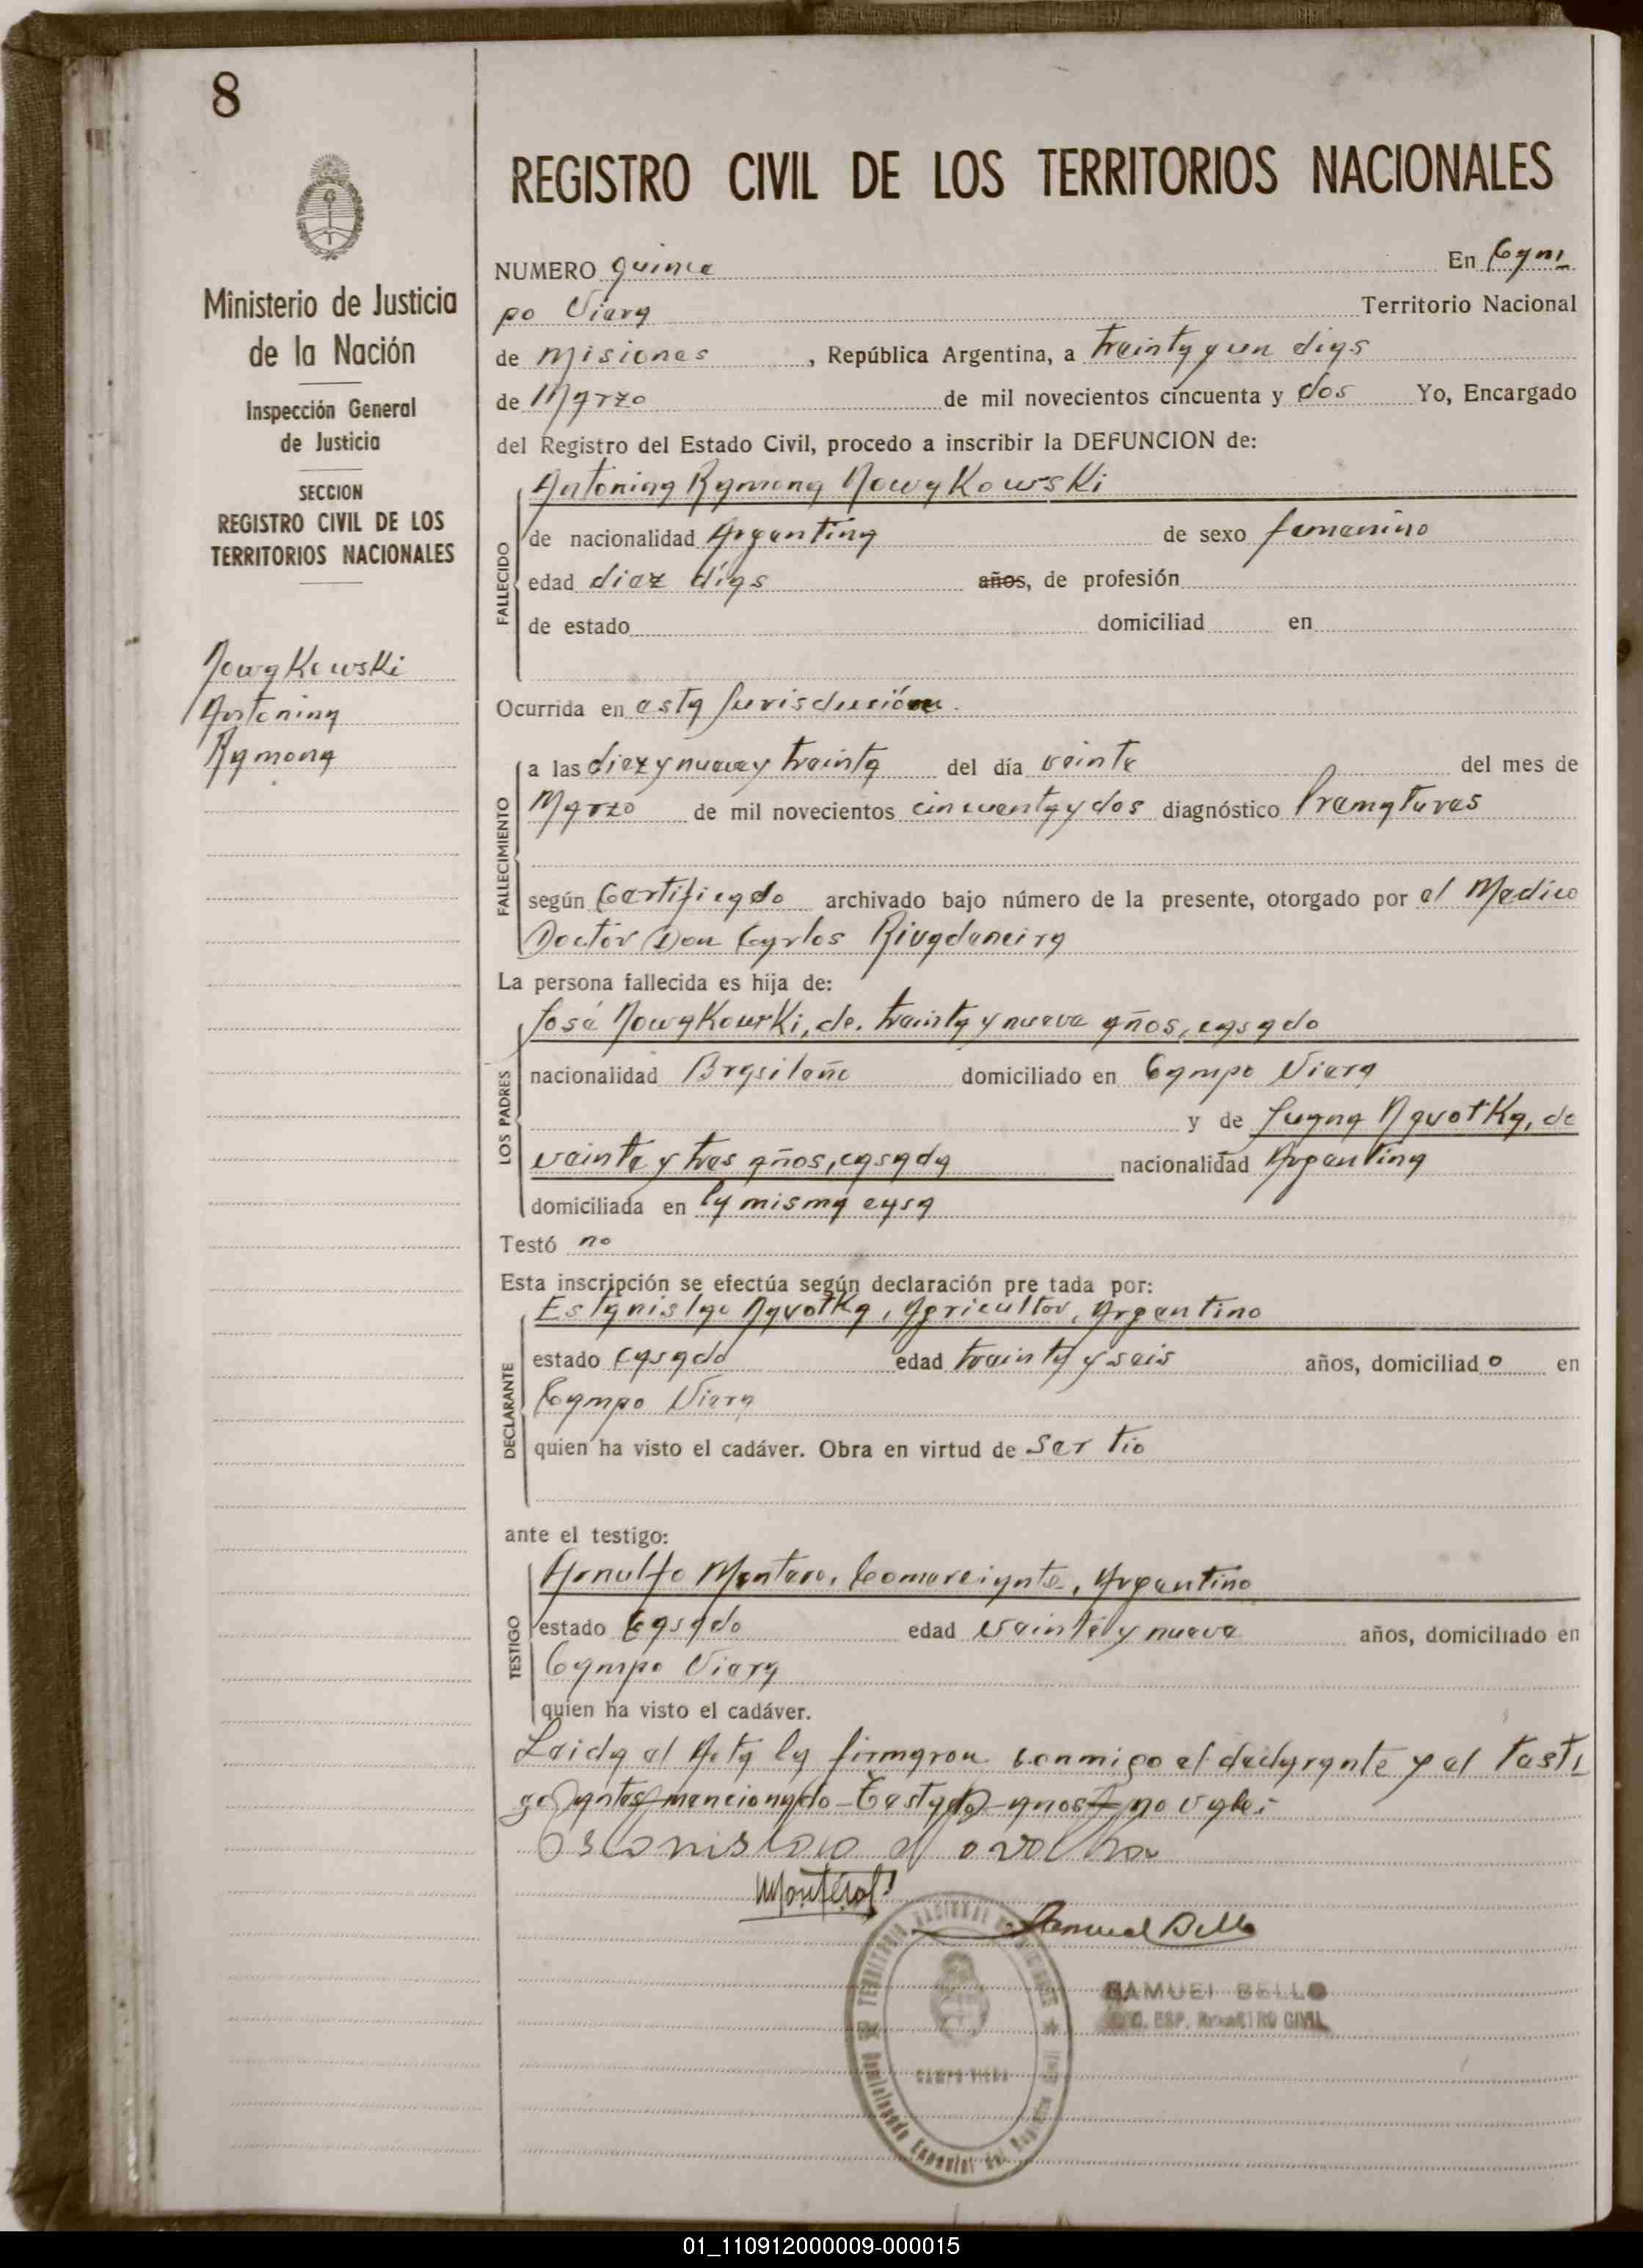 8
Ministerio de Justicia
de la Nación
Inspección General
de Justicia
SECCION
REGISTRO CIVIL DE LOS
TERRITORIOS NACIONALES
Nowakowski
Antonina
Ramona
REGISTRO CIVIL DE LOS TERRITORIOS NACIONALES
NUMERO quince En Cam
po Viera Territorio Nacional
de Misiones, República Argentina, a treinta y un dias
de Marzo de mil novecientos cincuenta y dos Yo, Encargado
del Registro del Estado Civil, procedo a inscribir la DEFUNCION de:
Antonina Ramona Nowakowski
FALLECIDO
de nacionalidad Argentina de sexo femenino
edad diez días años, de profesión
de estado domiciliad en
Ocurrida en esta
FALLECIMIENTO
a las diez y nueve y treinta del día veinte del mes de
Marzo de mil novecientos cincuenta y dos diagnóstico Prematures
según Certificado archivado bajo número de la presente, otorgado por el Medico
Doctor Don Carlos Rivadeneira
La persona fallecida es hija de:
LOS PADRES
José Nowakowski, de treinta y nueve años, casado
nacionalidad Brasileño domiciliado en Campo Viera
y de Juana Navotka, de
veinte y tres años, casada nacionalidad Argentina
domiciliada en la misma casa
Testó no
Esta inscripción se efectúa según declaración pre tada por:
DECLARANTE
Estanislao Navotka, Agricultor, Argentino
estado casado edad treinta y seis años, domiciliado en
Campo Viera
quien ha visto el cadáver. Obra en virtud de ser tio
ante el testigo:
TESTIGO
Arnulfo Montero, Comerciante, Argentino
estado Casado edad veinte y nueve años, domiciliado en
Campo Viera
quien ha visto el cadáver.
Leida el Acta la firmaron conmigo el declarante y el testi
go antes mencionado - Testado - años - no vale:
Montero
Samuel Bello
TERRITORIO NACIONAL DE MISIONES
CAMPO VIERA
SAMUEL BELLO
ESP. REGISTRO CIVIL
01_110912000009-000015